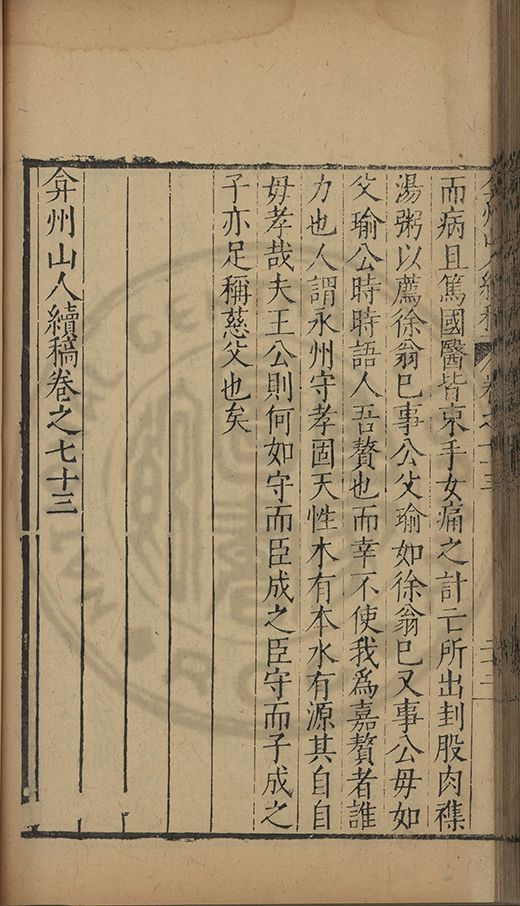 而病且篤國醫皆束手女痛之計亡所出刲股肉襍
湯粥以薦徐翁已事公父瑜如徐翁已又事公毋如
父瑜公時時語人吾贅也而幸不使我爲嘉贅者誰
力也人謂永州守孝固天性木有本水有源其自自
毋孝哉夫王公則何如守而臣成之臣守而子成之
子亦足稱慈父也矣
弇州山人續稿卷之七十三